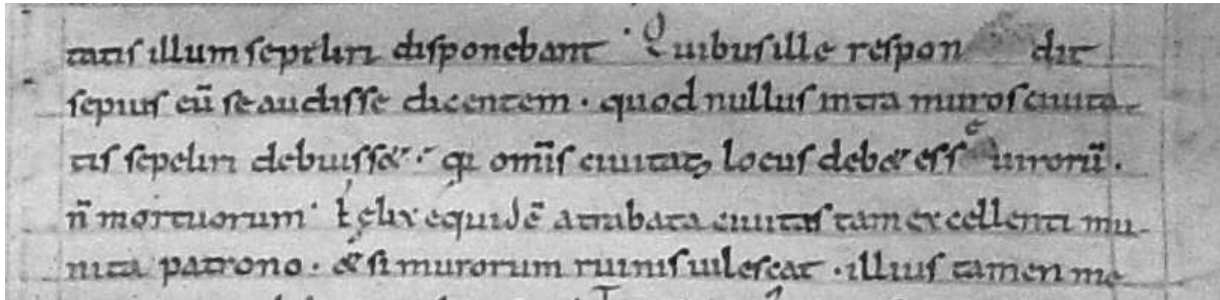 tatis illum sepeliri disponebant · Quibus ille respon dit
sepius eũ se audisse dicentem · quod nullus intra muros ciuita-
tis sepeliri debuiss& · qi om̃is ciuitatꝭ locus deb& esse uirorũ ·
ñ mortuorum · Felix equidẽ atrabata ciuitas tam excellenti mu-
nita patrono · & si murorum ruinis uilescat · illius tamen me